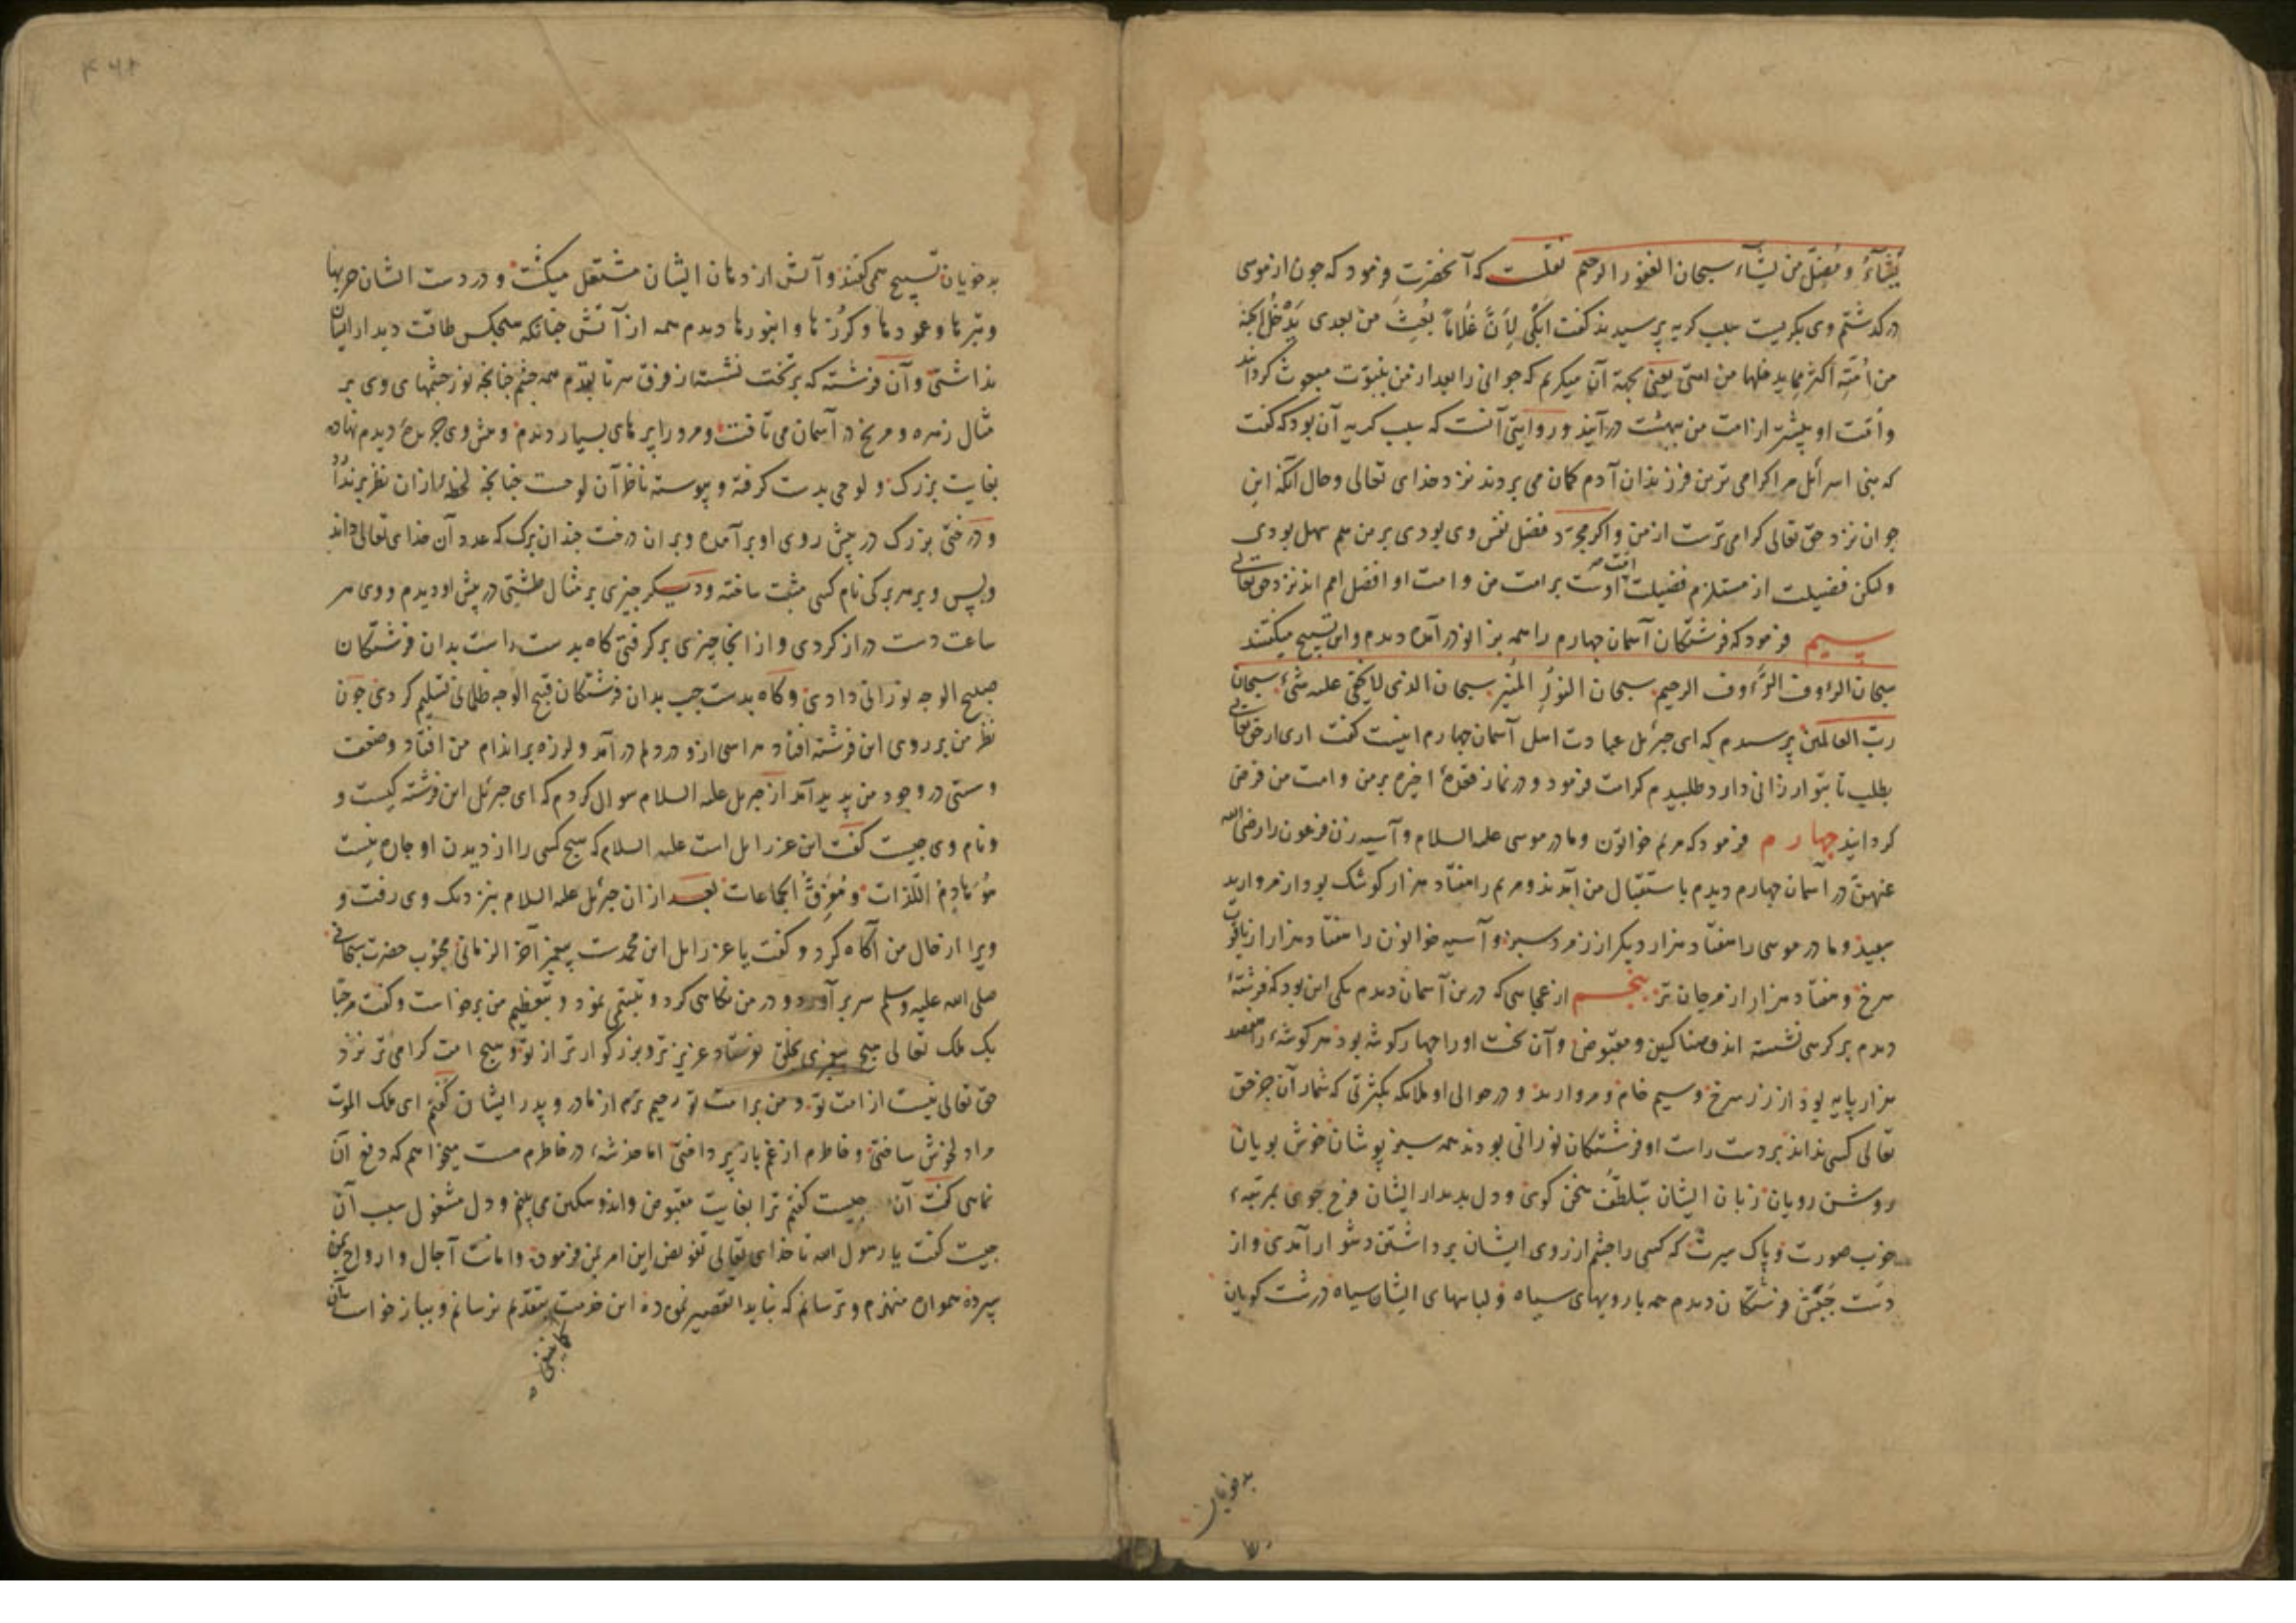 یشآءُ و مُضِلّ من یشآء سبحان الغفور الرحیم نقلست که آنحضرت فرمود که چون از موسی
درکذشتم وی بکریست سبب کریه پرسیدند کفت اَبکی لِاَنَّ غلاماً بُعِثَ من بعدی یَدْخُل الجنة
من اُمّتِه اکثر مما یدخلها من امتی یعنی بجهة آن میکریم که جوانی را بعد از من بنبوّت مبعوث کردانید
و امّت او بیشتر از امت من ببهشت درآیند و روایتی آنست که سبب کریه آن بود که کفت
که بنی اسرائل مرا کرامی ترین فرزندان آدم کمان می بردند نزد خدای تعالی و حال آنکه این
جوان نزد حق تعالی کرامی ترست از من و اکر مجرّد فضل نفس وی بودی بر من هم سهل بودی
ولکن فضیلت او مستلزم فضیلت امّت اوست بر امت من و امت او افضل امم اند نزد حق تعالی
سیم فرمود که فرشتکان آسمان چهارم را همه بزانو درآمده دیدم و این تسبیح میکفتند
سبحان الرؤوف الرحیم سبحان النورُ المُنیر سبحان الذی لا یخفی علیه شیءٌ سبحان
ربّ العالمین پرسیدم که ای جبرئل عبادت اهل آسمان چهارم اینست کفت آری از حق تعالی
بطلب تا بتو ارزانی دارد طلبیدم کرامت فرمود و در نماز قعدهٔ اخیره بر من و امت من فرض
کردانید چهارم فرمود که مریم خواتون و مادر موسی علیه السلام و آسیه زن فرعون را رضی الله
عنهنّ در آسمان چهارم دیدم باستقبال من آمدند و مریم را هفتاد هزار کوشک بود از مروارید
سپید و مادر موسی را هفتاد هزار دیکر از زمرد سبز و آسیه خواتون را هفتاد هزار از یاقوت
سرخ و هفتاد هزار از مرجان تر پنجم از عجایبی که درین آسمان دیدم یکی این بود که فرشتهٔ
دیدم بر کرسی نشسته اندوهناکین و مقبوض و آن تخت او را چهار کوشه بود هر کوشه را هفصد
هزار پایه بود از زر سرخ و سیم خام و مروارید و در حوالی او ملائکه بکثرتی که شمار آن جز حق
تعالی کسی نداند بر دست راست او فرشتکان نورانی بودند همه سبز پوشان خوش بویان
روشن رویان زبان ایشان بتلطّف سخن کوی و دل بدیدار ایشان فرح جوی بمرتبهٔ
خوب صورت و پاک سیرت که کسی را چشم از روی ایشان برداشتن دشوار آمدی و از
دست چپش فرشتکان دیدم همه با رویهای سیاه و لباسهای ایشان سیاه درشت کویان
بدخویان
بدخویان تسبیح همی کفتند و آتش از دهان ایشان مشتعل میکشت و در دست ایشان حربها
و تبرها و عمودها و کُرزها و انبورها دیدم همه از آتش چنانکه هیچکس طاقت دیدار ایشان
نداشتی و آن فرشته که بر تخت نشسته از فرق سر تا بقدم همه چشم چنانچه نور چشمهای وی بر
مثال زهره و مریخ در آسمان می تافت و مرورا پرهای بسیار دیدم و پیش وی جریدهٔ دیدم نهاده
بغایت بزرک و لوحی بدست کرفته و پیوسته ناظر آن لوحست چنانچه لحظهٔ از آن نظر برندارد
و درختی بزرک در پیش روی او برآمده و بر آن درخت چندان برک که عدد آن خدای تعالی داند
و بس و بر هر برکی نام کسی مثبت ساخته و دیکر چیزی بر مثال طشتی در پیش او دیدم و وی هر
ساعت دست دراز کردی و از آنجا چیزی برکرفتی کاه بدست راست بدان فرشتکان
صبیح الوجه نورانی دادی و کاه بدست چپ بدان فرشتکان قبیح الوجه ظلمانی تسلیم کردی چون
نظر من بر روی این فرشته افتاد هراسی از و در دلم درآمد و لرزه بر اندام من افتاد و ضعف
و سستی در وجود من پدید آمد از جبریل علیه السلام سوال کردم که ای جبرئل این فرشته کیست و
و نام وی چیست کفت این عزرایل است علیه السلام که هیچ کسی را از دیدن او چاره نیست
هُوَ هَادِمُ اللّذات و مُفرِّقُ الجماعات بعد از آن جبرئل علیه السلام بنزدیک وی رفت و
ویرا از حال من آکاه کرد و کفت یا عزرایل این محمدست پیغمبر آخر الزمانی محبوب حضرت سبحانی
صلی الله علیه وسلم سر برآورد و در من نکاهی کرد و تبسّمی نمود و بتعظیم من برخواست و کفت مرحبا
بک ملک تعالی هیچ پیغمبری بخلق نفرستاد عزیزتر و بزرکوارتر از تو و هیچ امت کرامی تر نزد
حق تعالی نیست از امت تو و من بر امت تو رحیم ترم از مادر و پدر ایشان کفتم ای ملک الموت
مرا دلخوش ساختی و خاطرم از غم باز پرداختی اما خدشهٔ در خاطرم هست میخواهم که دفع آن
نمایی کفت آن چیست کفتم ترا بغایت مقبوض و اندوهکین می بینم و دل مشغول سبب آن
چیست کفت یا رسول الله تا خدای تعالی تفویض این امر بمن فرموده و امانت آجال و ارواح بمن
سپرده هموار منهزم و ترسانم که نباید تقصیر نموده این خدمت بتقدیم نرسانم و بباز خواست آن